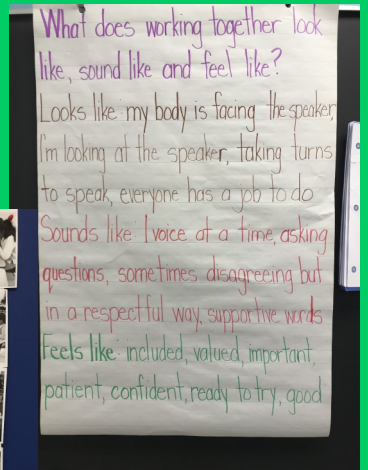 What does working together look
like, sound like and feel like?
Looks like: my body is facing the speaker,
I'm looking at the speaker, taking turns
to speak, everyone has a job to do
Sounds like: 1 voice at a time, asking
questions, sometimes disagreeing but
in a respectful way, supportive words
Feels like: included, valued, important,
patient, confident, ready to try, good